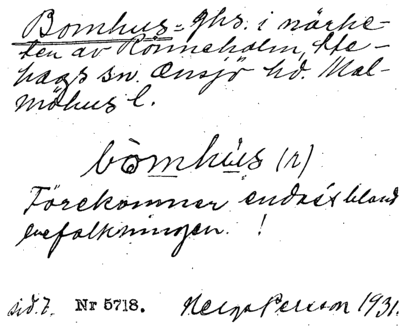 Bomhus = ghs. i närhe-
ten av Rönneholm, Ste-
hags sn. Onsjö hd. Mal-
möhus l.
bòmhùs (n)
Förekommer endast bland
befolkningen. !
sid. 7. Nr 5718. Helge Persson 1931.